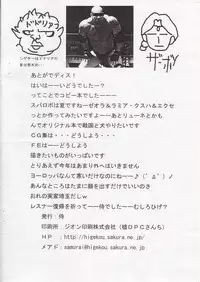 あとがでディス！
はいはーーいどうでした－？
ってことでコピー本でした－ーー
スパロボは宴ですねーゼオラ＆ラミア・クスハ＆エクセ
っとか作ってみたいですよーーあとリューネとかも
んでオリジナル本で戦国と犬やりたいです
CG集は・・・どうしよう・・・
FEはーーどうしよう
描きたいものがいっぱいです
とりあえず今年はあまり外へはいきません
ヨーロッパなんて暑いだけなのにねーー♪(´д｀)ノ
あんなところはたまに顔を出すだけでいいのさ
おれの実家埼玉だしｗ
レスナー優勝を祈って－－侍でした－－むしろひげ？
発行：侍
印刷所　ジオン印刷株式会社（墟DPGさんち）
HP　：http://higekou.sakura.ne.jp/
メアド：samurai@higekou.sakura.ne.jp